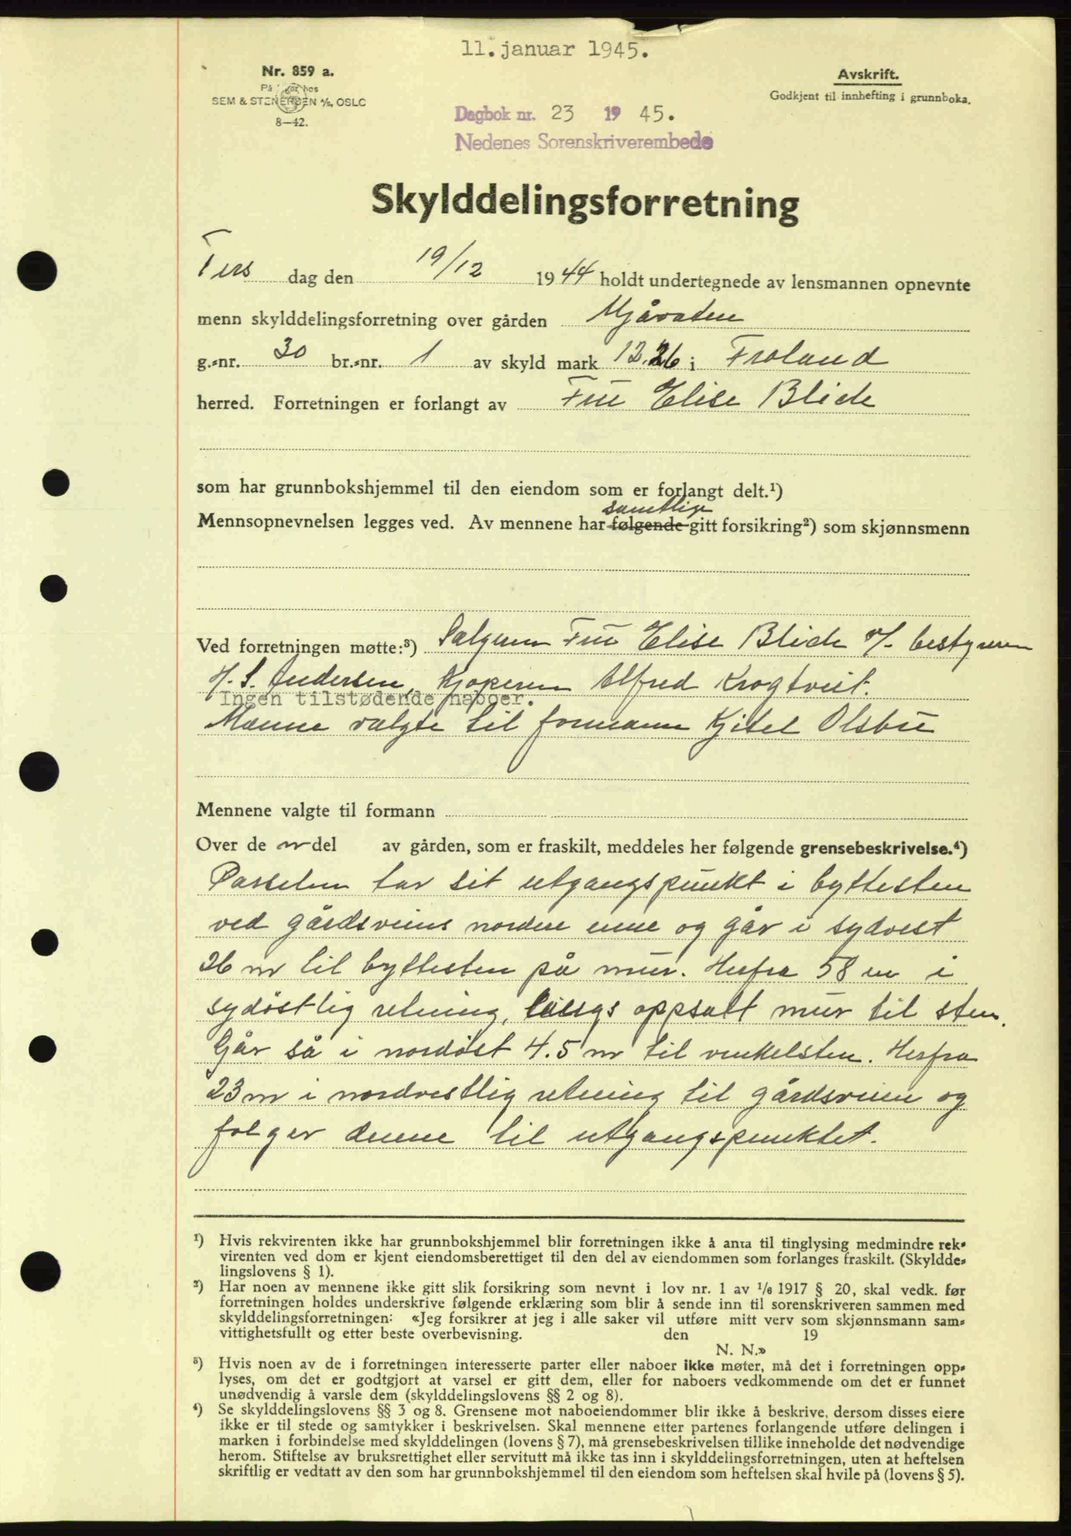 11. januar 1945.
Nr. 859 a.
SEM & STENERSEN A/S, OSLO
8—42.
Avskrift.
Godkjent til innhefting i grunnboka.
Dagbok nr. 23 1945.
Nedenes Sorenskriverembede
Skylddelingsforretning
Tirs dag den 19/12 1944 holdt undertegnede av lensmannen opnevnte
menn skylddelingsforretning over gården Mjåvaten
g.-nr. 30 br.-nr. 1 av skyld mark 12.26 i Froland
herred. Forretningen er forlangt av Fru Elise Blick
som har grunnbokshjemmel til den eiendom som er forlangt delt.¹)
samtlige
Mennsopnevnelsen legges ved. Av mennene har følgende gitt forsikring²) som skjønnsmenn
Ved forretningen møtte:³) Selgeren Fru Elise Blick v/ bestyreren
H. S. Andersen, Kjøperen Alfred Krogtveit.
Ingen tilstødende naboer.
Menne valgte til formann Kjitel Olsbu
Mennene valgte til formann
Over de n del av gården, som er fraskilt, meddeles her følgende grensebeskrivelse.⁴)
Parselen tar sit utgangspunkt i byttesten
ved gårdsveiens nordre enne og går i sydvest
26 m til byttesten på mur. Herfra 58 m i
sydøstlig retning, langs oppsatt mur til sten.
Går så i nordøst 4.5 m til vinkelsten. Herfra
23 m i nordvestlig retning til gårdsveien og
følger denne til utgangspunktet.
¹) Hvis rekvirenten ikke har grunnbokshjemmel blir forretningen ikke å anta til tinglysing medmindre rek-
virenten ved dom er kjent eiendomsberettiget til den del av eiendommen som forlanges fraskilt. (Skyldde-
lingslovens § 1).
²) Har noen av mennene ikke gitt slik forsikring som nevnt i lov nr. 1 av 1/6 1917 § 20, skal vedk. før
forretningen holdes underskrive følgende erklæring som blir å sende inn til sorenskriveren sammen med
skylddelingsforretningen: «Jeg forsikrer at jeg i alle saker vil utføre mitt verv som skjønnsmann sam-
vittighetsfullt og etter beste overbevisning. den 19
N. N.»
³) Hvis noen av de i forretningen interesserte parter eller naboer ikke møter, må det i forretningen opp-
lyses, om det er godtgjort at varsel er gitt dem, eller for naboers vedkommende om det er funnet
unødvendig å varsle dem (skylddelingslovens §§ 2 og 8).
⁴) Se skylddelingslovens §§ 3 og 8. Grensene mot naboeiendommer blir ikke å beskrive, dersom disses eiere
ikke er til stede og samtykker i beskrivelsen. Skal mennene etter partenes forlangende utføre delingen i
marken i forbindelse med skylddelingen (lovens § 7), må grensebeskrivelsen tillike inneholde det nødvendige
herom. Stiftelse av bruksrettighet eller servitutt må ikke tas inn i skylddelingsforretningen, uten at heftelsen
skriftlig er vedtatt av den som har grunnbokshjemmel til den eiendom som heftelsen skal hvile på (lovens § 5).